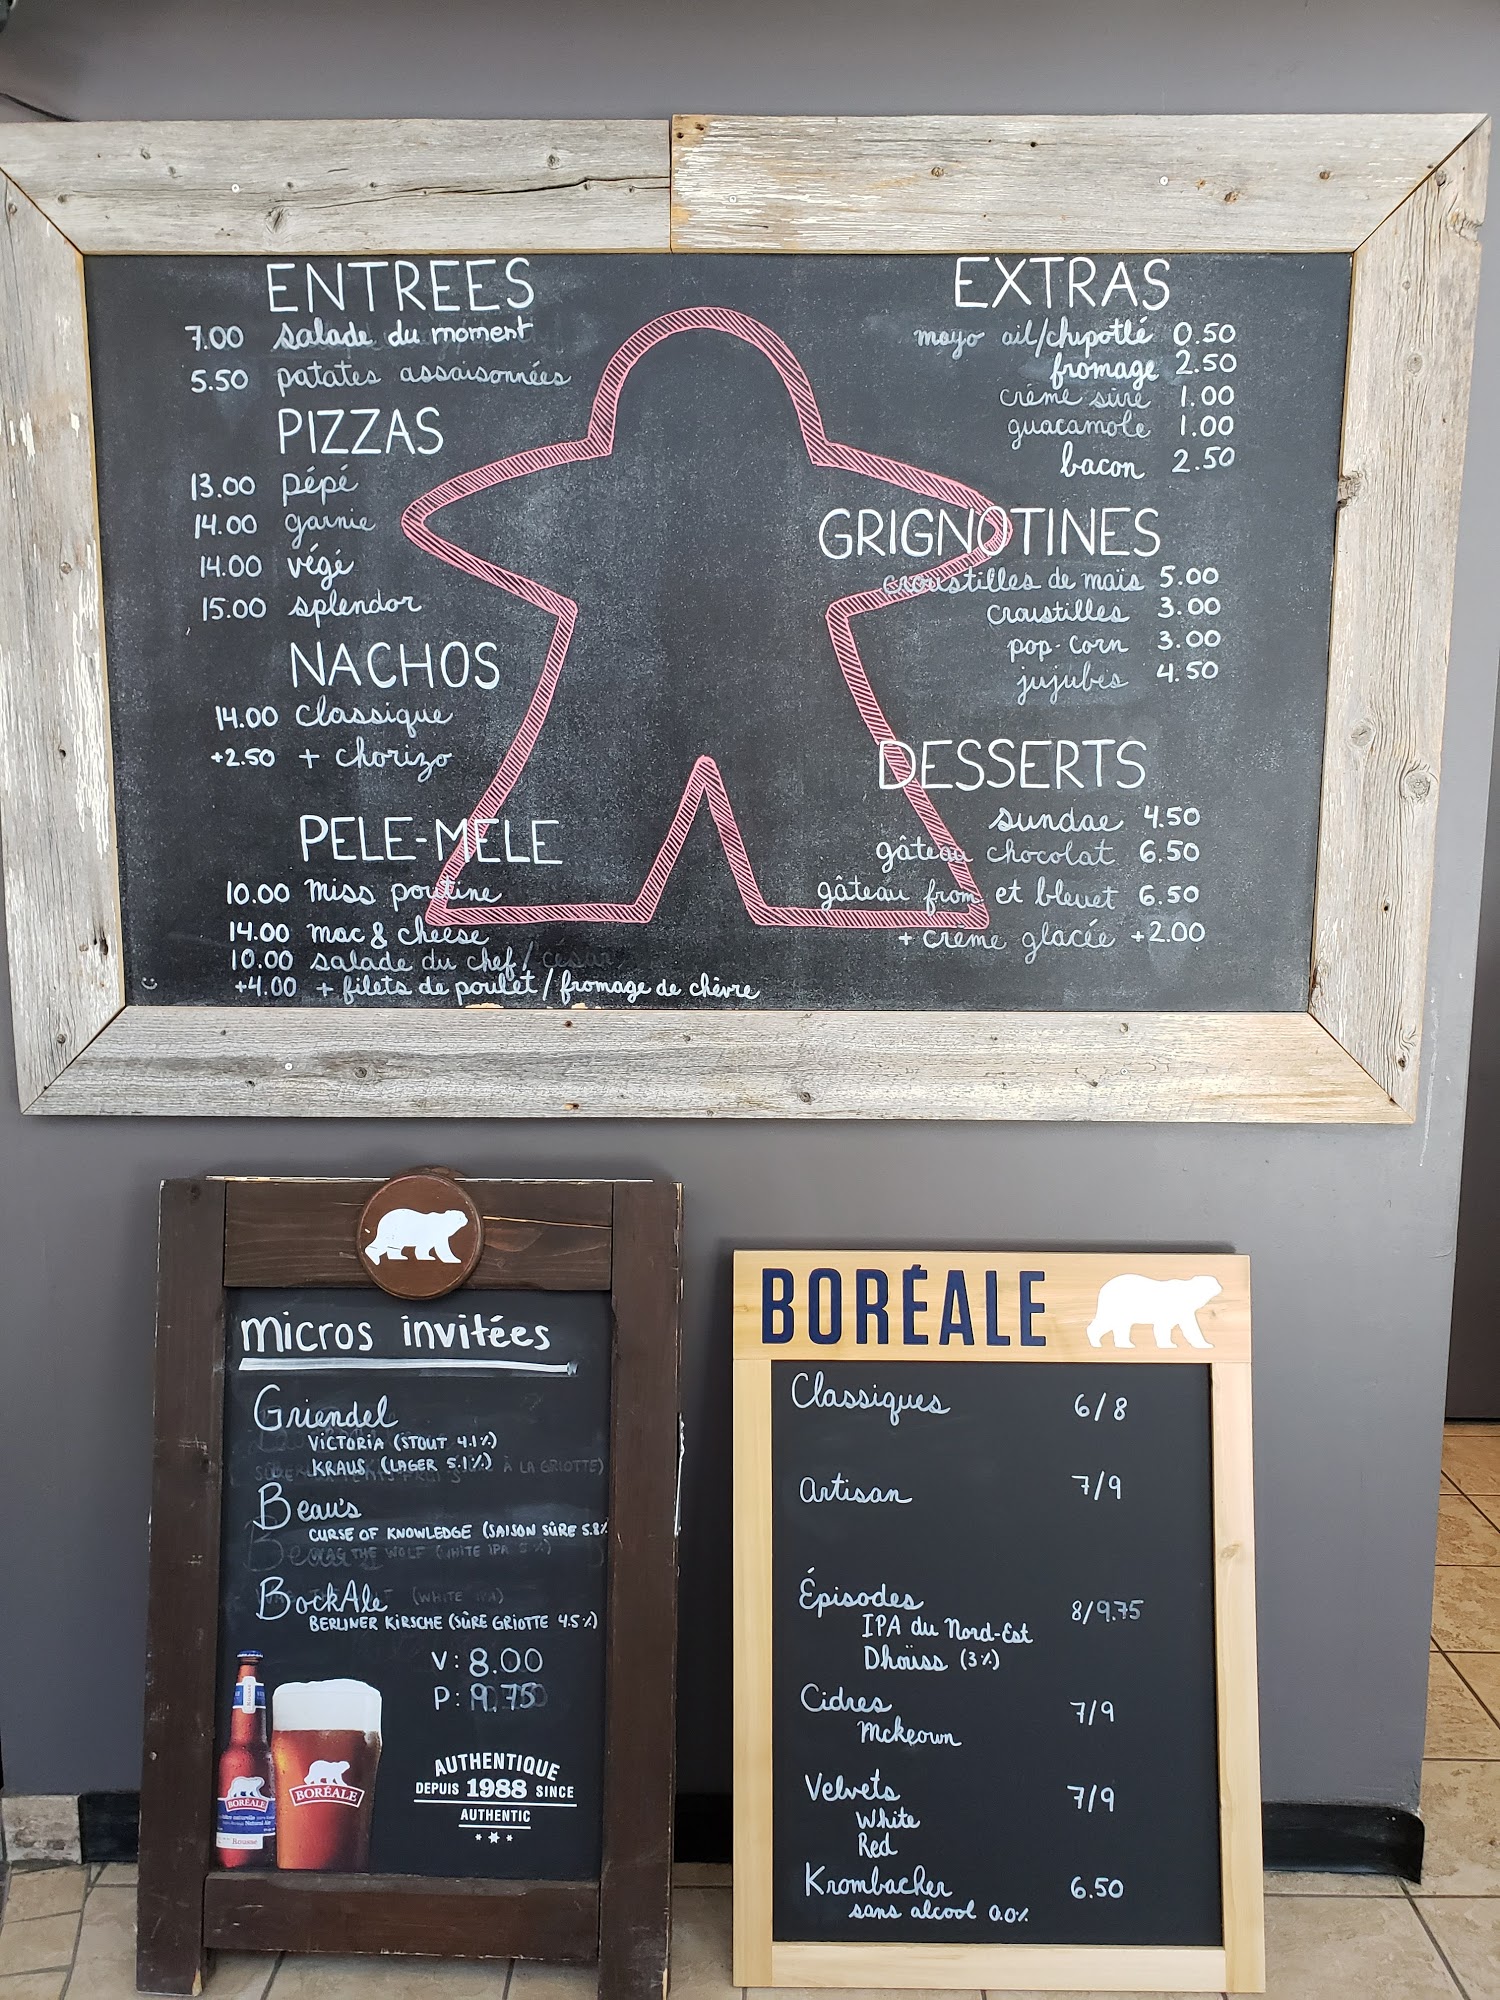 ENTREES
7.00 salade du moment
5.50 patates assaisonnées
PIZZAS
13.00 pépé
14.00 garnie
14.00 végé
15.00 splendor
NACHOS
14.00 classique
+2.50 + chorizo
PELE-MELE
10.00 miss poutine
14.00 mac & cheese
10.00 salade du chef / césar
+4.00 + filets de poulet / fromage de chèvre
EXTRAS
mayo ail/chipotlé 0.50
fromage 2.50
crème sûre 1.00
guacamole 1.00
bacon 2.50
GRIGNOTINES
croustilles de maïs 5.00
croustilles 3.00
pop-corn 3.00
jujubes 4.50
DESSERTS
sundae 4.50
gâteau chocolat 6.50
gâteau from et bleuet 6.50
+ crème glacée +2.00
micros invitées
Griendel
VICTORIA (STOUT 4.1%)
KRAUS (LAGER 5.1%)
À LA GRIOTTE)
Beau's
CURSE OF KNOWLEDGE (SAISON SÛRE 5.8%
THE WOLF (WHITE IPA 5%)
BockAle (WHITE IPA)
BERLINER KIRSCHE (SÛRE GRIOTTE 4.5%)
V: 8.00
P: 9.75
AUTHENTIQUE
DEPUIS 1988 SINCE
AUTHENTIC
BORÉALE
BORÉALE
Natural Ale
Rousse
BORÉALE
Classiques 6/8
Artisan 7/9
Épisodes 8/9.75
IPA du Nord-Est
Dhöuss (3%)
Cidres 7/9
Mckeown
Velvets 7/9
White
Red
Krombacher 6.50
sans alcool 0.0%